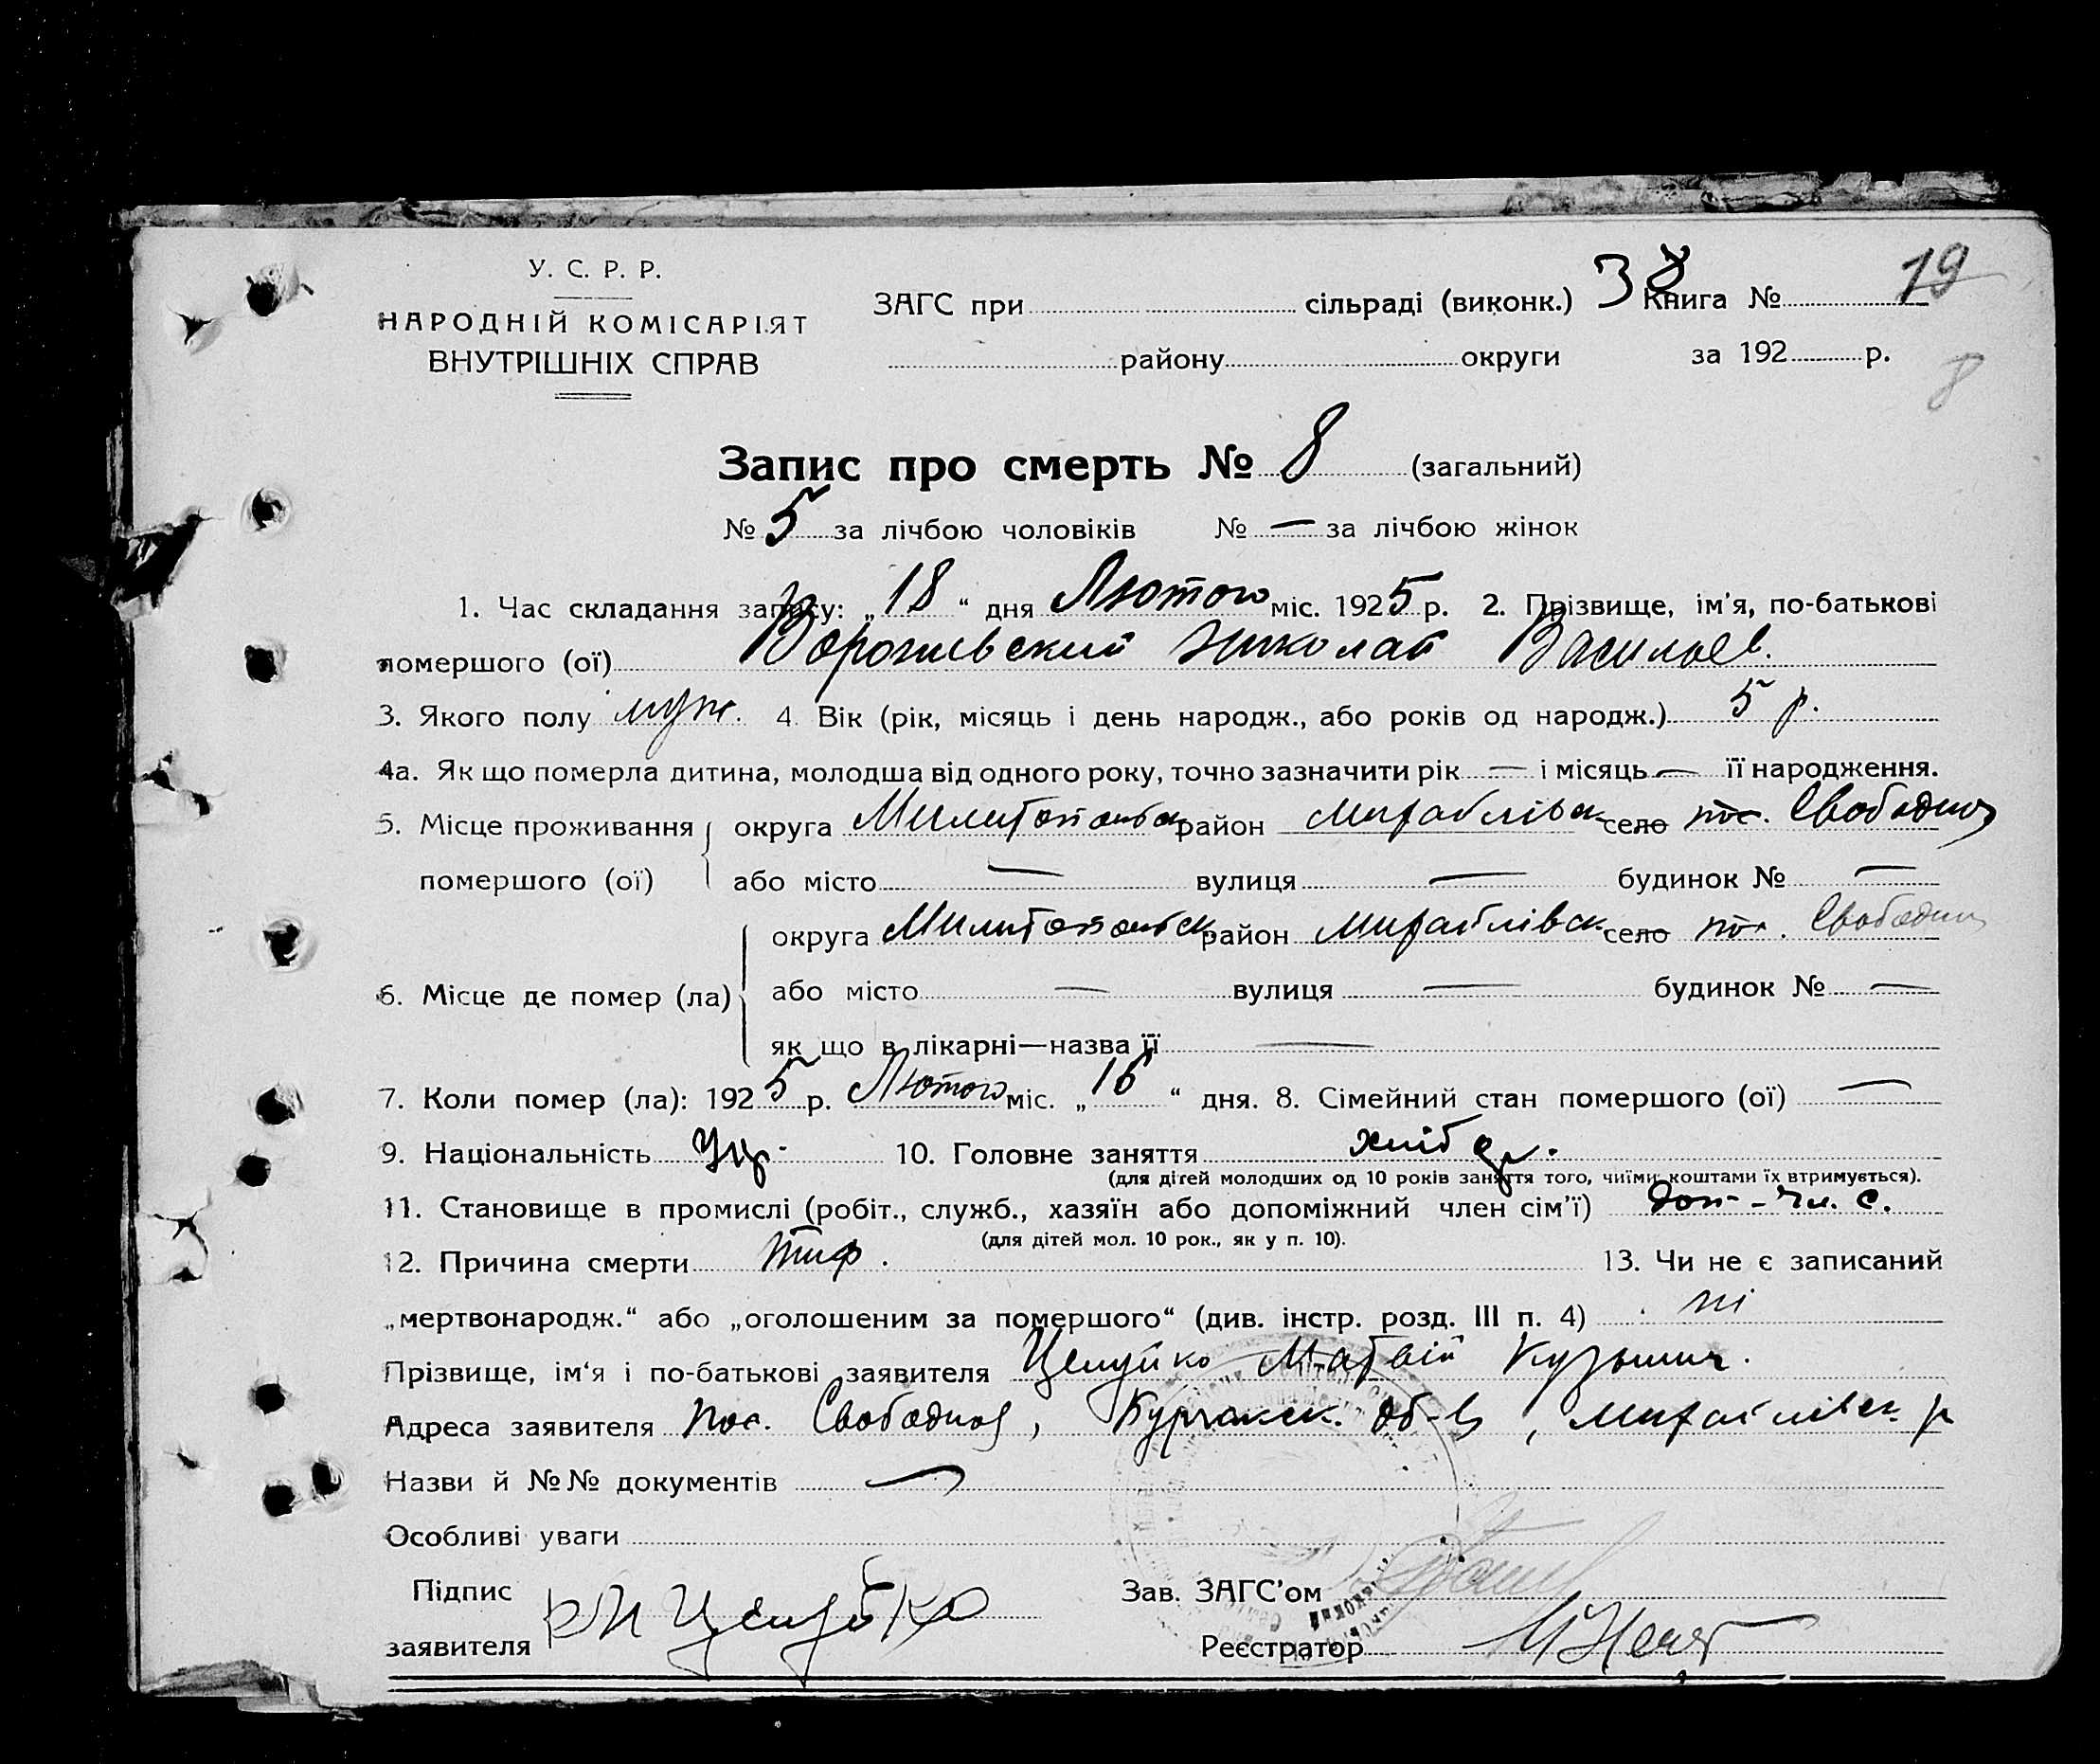 У. С. Р. Р.
НАРОДНІЙ КОМІСАРІЯТ
ВНУТРІШНІХ СПРАВ
ЗАГС при сільраді (виконк.) 38 Книга № 19
району округи за 192 р.
8
Запис про смерть № 8 (загальний)
№ 5 за лічбою чоловіків № — за лічбою жінок
1. Час складання запису: „ 18 “ дня Лютого міс. 1925 р. 2. Прізвище, ім'я, по-батькові
помершого (ої) Николай Васильев.
3. Якого полу муж. 4. Вік (рік, місяць і день народж., або років од народж.) 5 р.
4а. Як що померла дитина, молодша від одного року, точно зазначити рік — і місяць — її народження.
5. Місце проживання округа Милитопольск район Михайлівск село пос. Свободная
помершого (ої) або місто — вулиця — будинок № —
округа Милитопольск район Михайлівск село пос. Свободная
6. Місце де помер (ла) або місто — вулиця — будинок № —
як що в лікарні—назва її —
7. Коли помер (ла): 1925 р. Лютого міс. „ 16 “ дня. 8. Сімейний стан помершого (ої) —
9. Національність Укр. 10. Головне заняття хліб
(для дітей молодших од 10 років заняття того, чиїми коштами їх втримується).
11. Становище в промислі (робіт., служб., хазяїн або допоміжний член сім'ї) доп-чл. с.
(для дітей мол. 10 рок., як у п. 10).
12. Причина смерти тиф. 13. Чи не є записаний
„мертвонародж.“ або „оголошеним за помершого“ (див. інстр. розд. III п. 4) ні
Прізвище, ім'я і по-батькові заявителя Целуйко Матвій Кузьмич.
Адреса заявителя пос. Свободная, об-ва, Михайлівск. р
Назви й №№ документів —
Особливі уваги
Підпис
заявителя Целуйко
Зав. ЗАГС'ом
Реєстратор